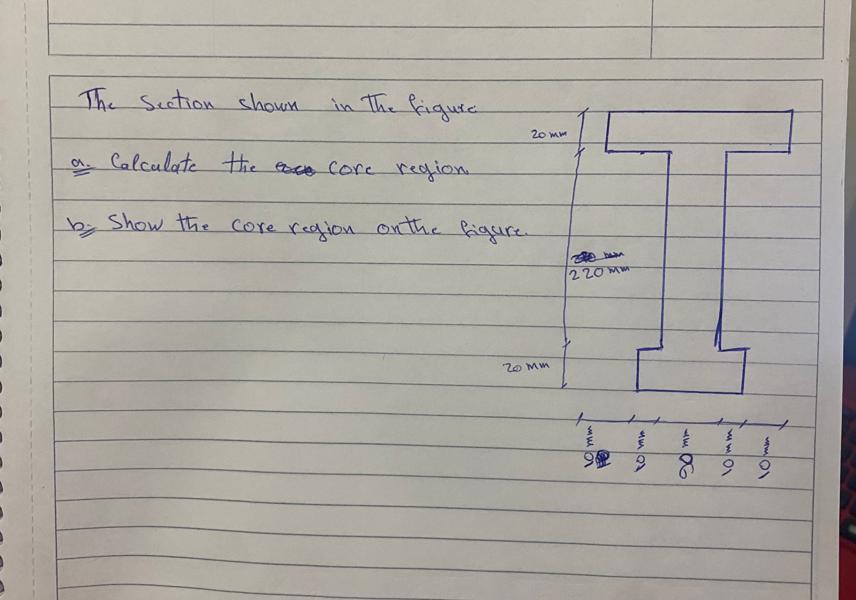 The Section shown in The figure
a- Calculate the core region
b- Show the core region on the figure.
20 mm
220 mm
20 mm
mm
mm
mm
mm
mm